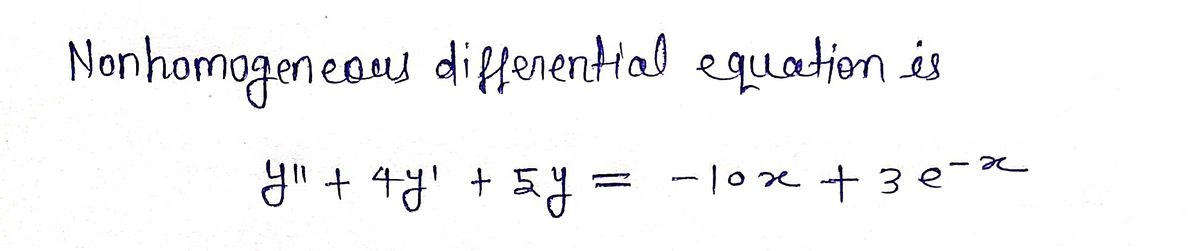 Nonhomogeneous differential equation is
y'' + 4y' + 5y = -10x + 3e^{-x}